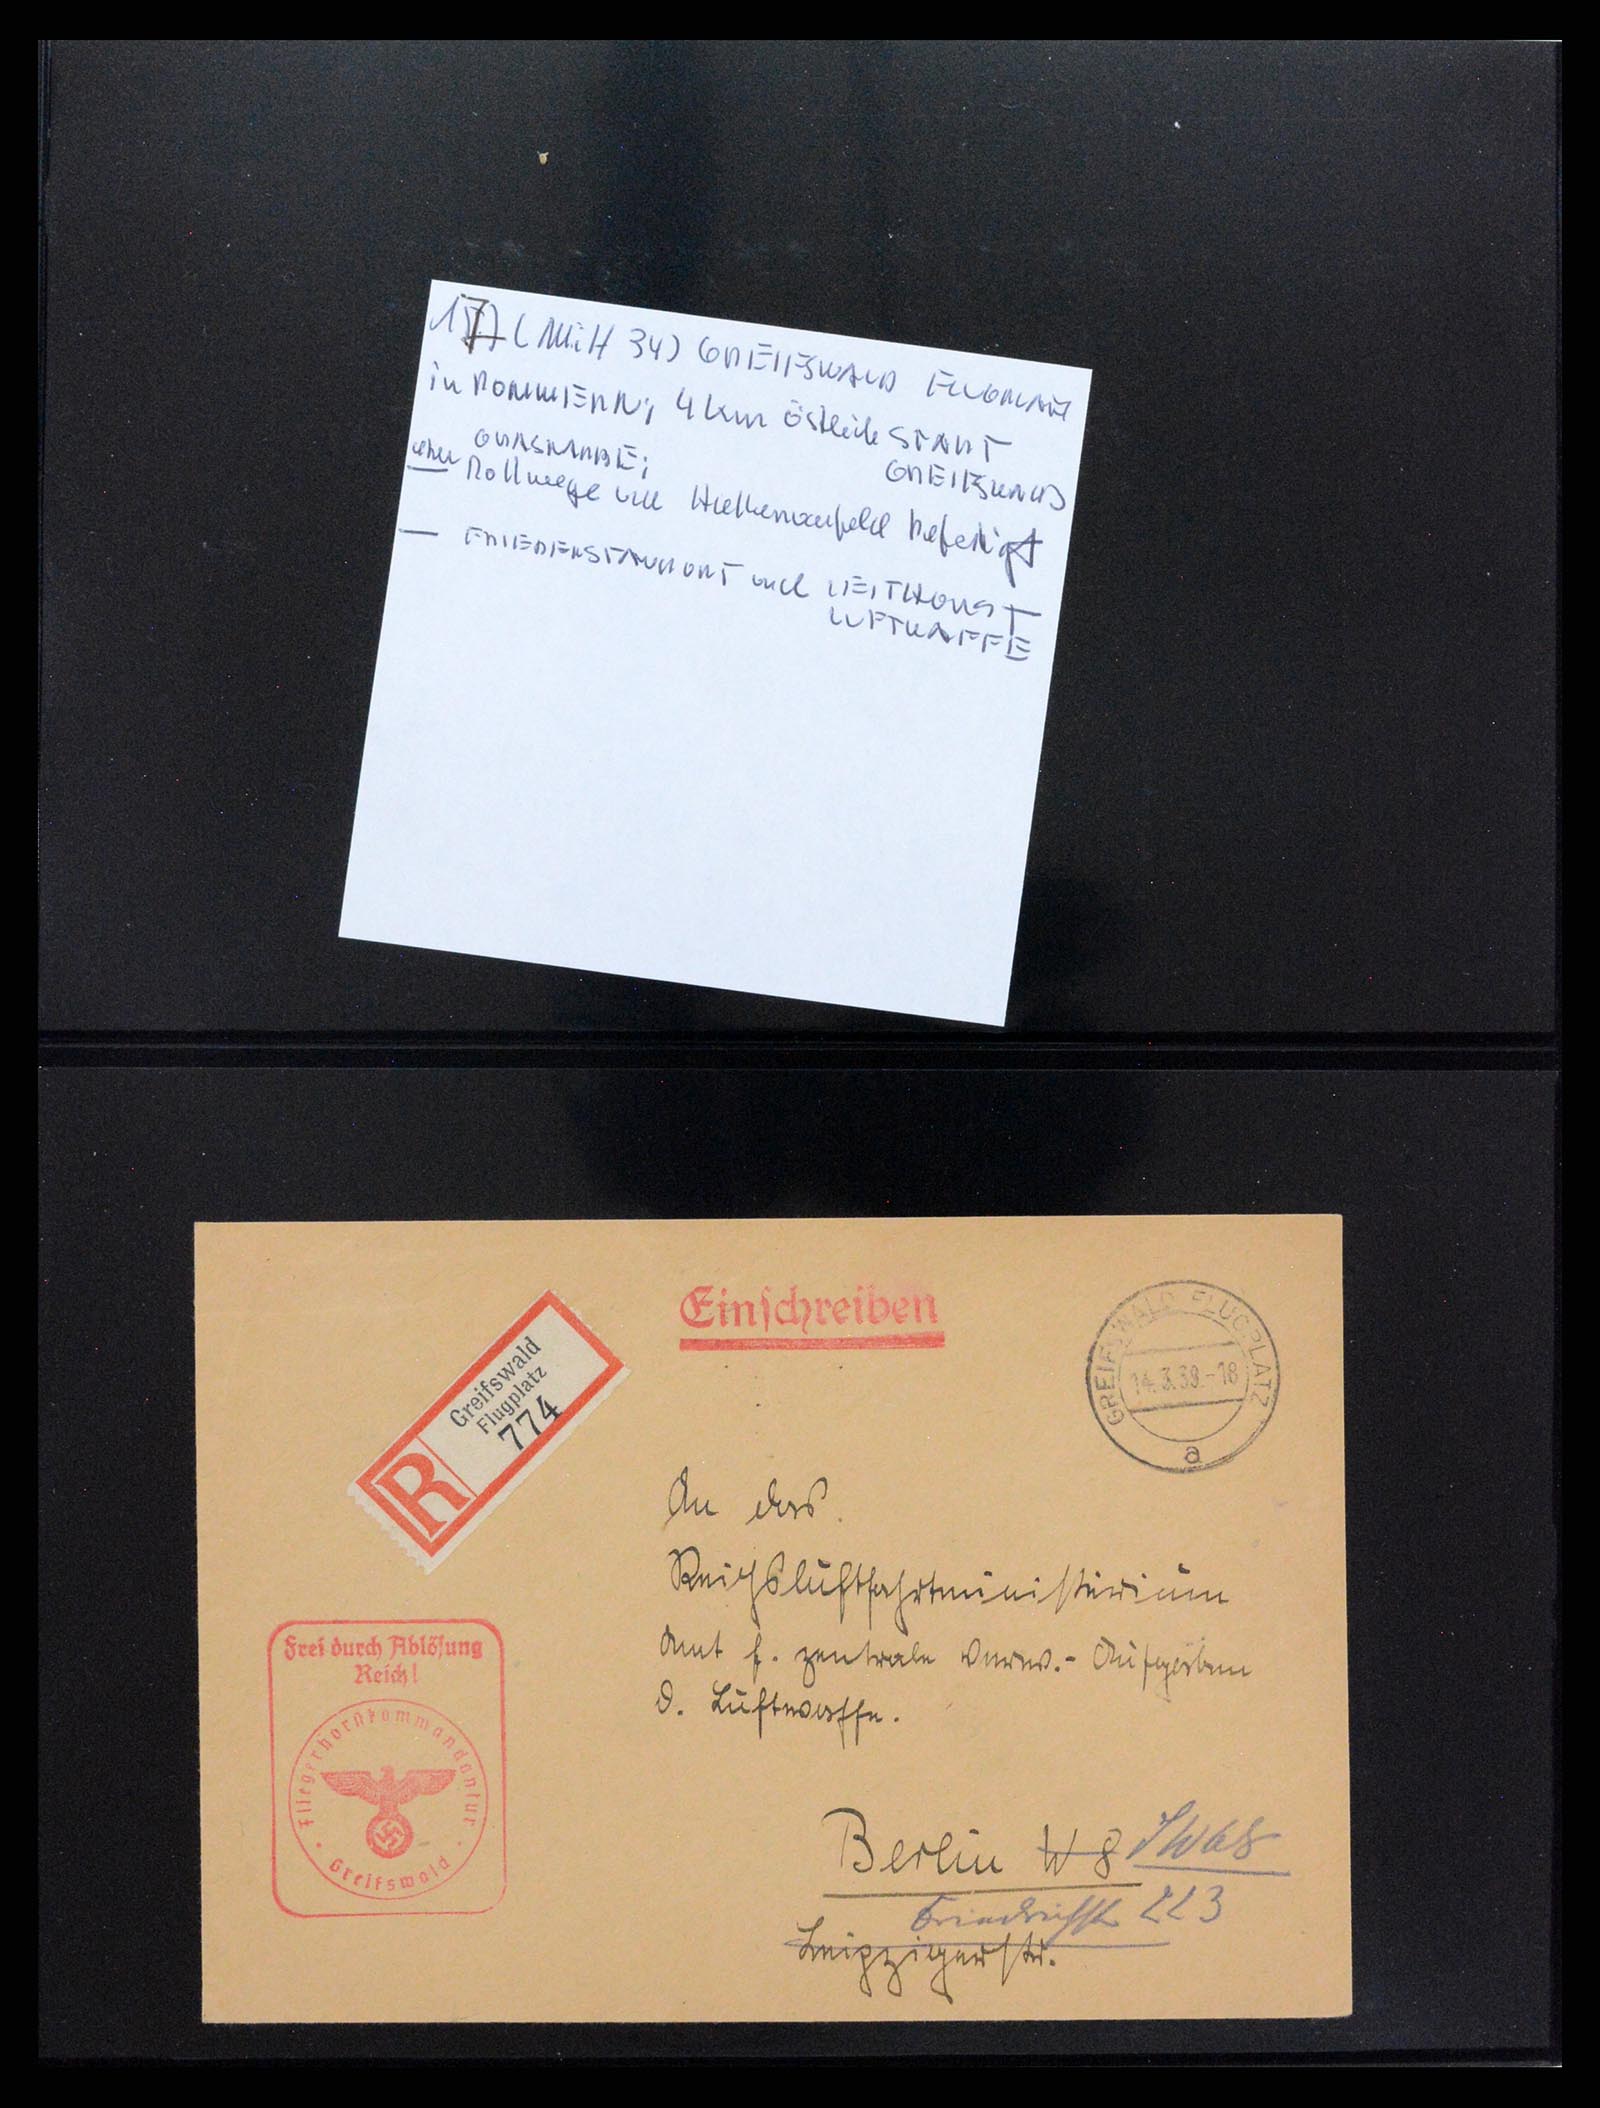 17) (Mi H 34) GREIFSWALD FLUGPLATZ
in POMMERN; 4 km östlich STADT
GREIFSWALD
GRASNARBE;
aber Rollwege und Hallenvorfeld befestigt
— FRIEDENSSTANDORT und LEITHORST
LUFTWAFFE
Einschreiben
GREIFSWALD FLUGPLATZ
14.3.39.-18
a
R
Greifswald
Flugplatz
774
An das
Reichsluftfahrtministerium
Amt f. zentrale Verw.- Aufgaben
d. Luftwaffe.
Frei durch Ablösung
Reich!
Fliegerhorstkommandantur
Greifswald
Berlin W 8 SW68
Friedrichstr 223
Leipzigerstr.